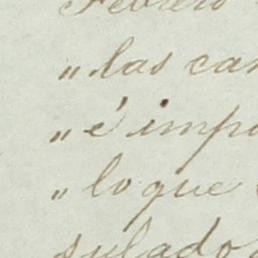 Febrero
„ las cas
„ é impo
„ lo que
sulado